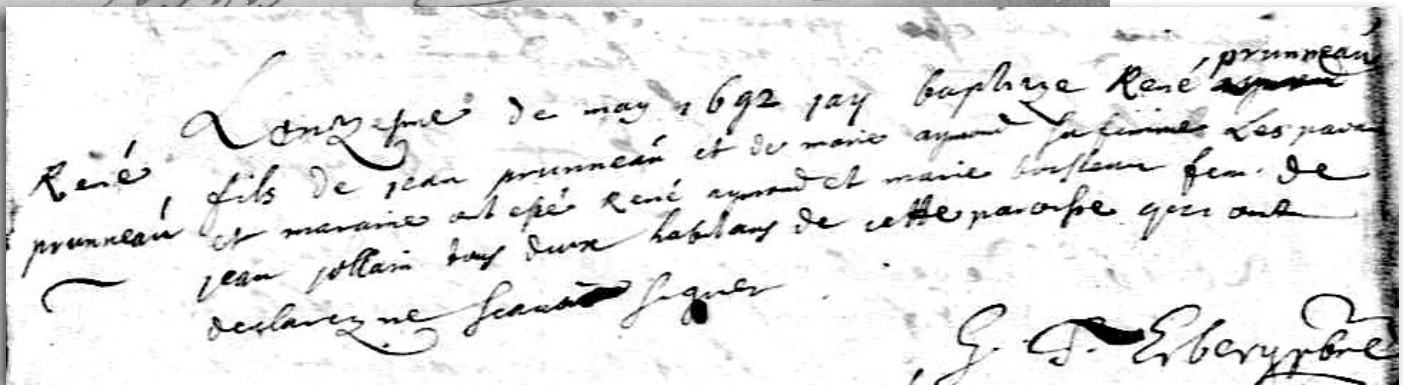 René
prunneau
prunneau
L'onzesme de may 1692 jay baptize René
fils de jean prunneau et de marie aymond sa femme Les parain
et maraine ont esté René aymond et marie femme de
jean jollain tous deux habitans de cette paroisse qui ont
declarez ne scauoir signer
G. F. pbre